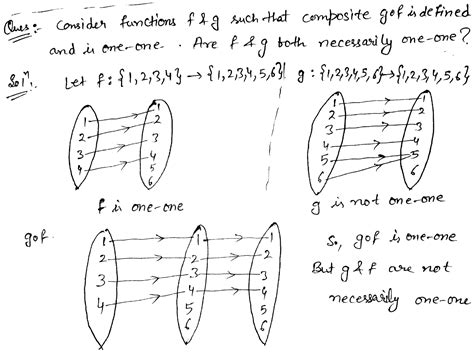 Ques:- Consider functions f & g such that composite gof is defined
and is one-one. Are f & g both necessarily one-one?
Solⁿ. Let f: {1,2,3,4} → {1,2,3,4,5,6} g: {1,2,3,4,5,6} → {1,2,3,4,5,6}
1 1 1 1
2 2 2 2
3 3 3 3
4 4 4 4
5 5 5
6 6 6
f is one-one g is not one-one
gof.
1 1 1
2 2 2
3 3 3
4 4 4
5 5
6 6
So, gof is one-one
But g & f are not
necessarily one-one